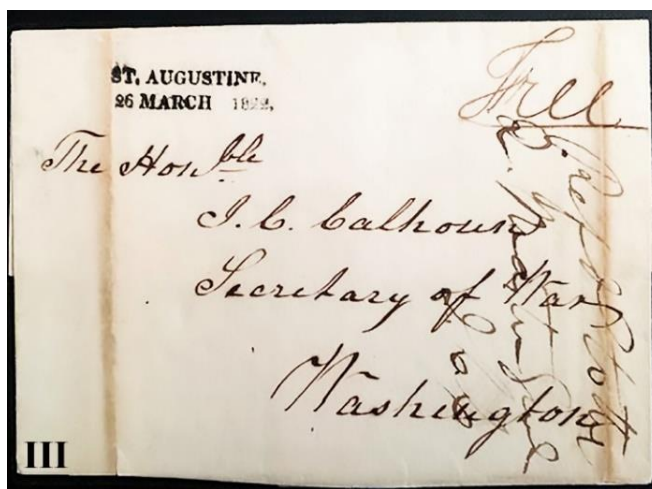 ST. AUGUSTINE,
26 MARCH 1822,
Free
The Honble
J. C. Calhoun
Secretary of War
Washington
III